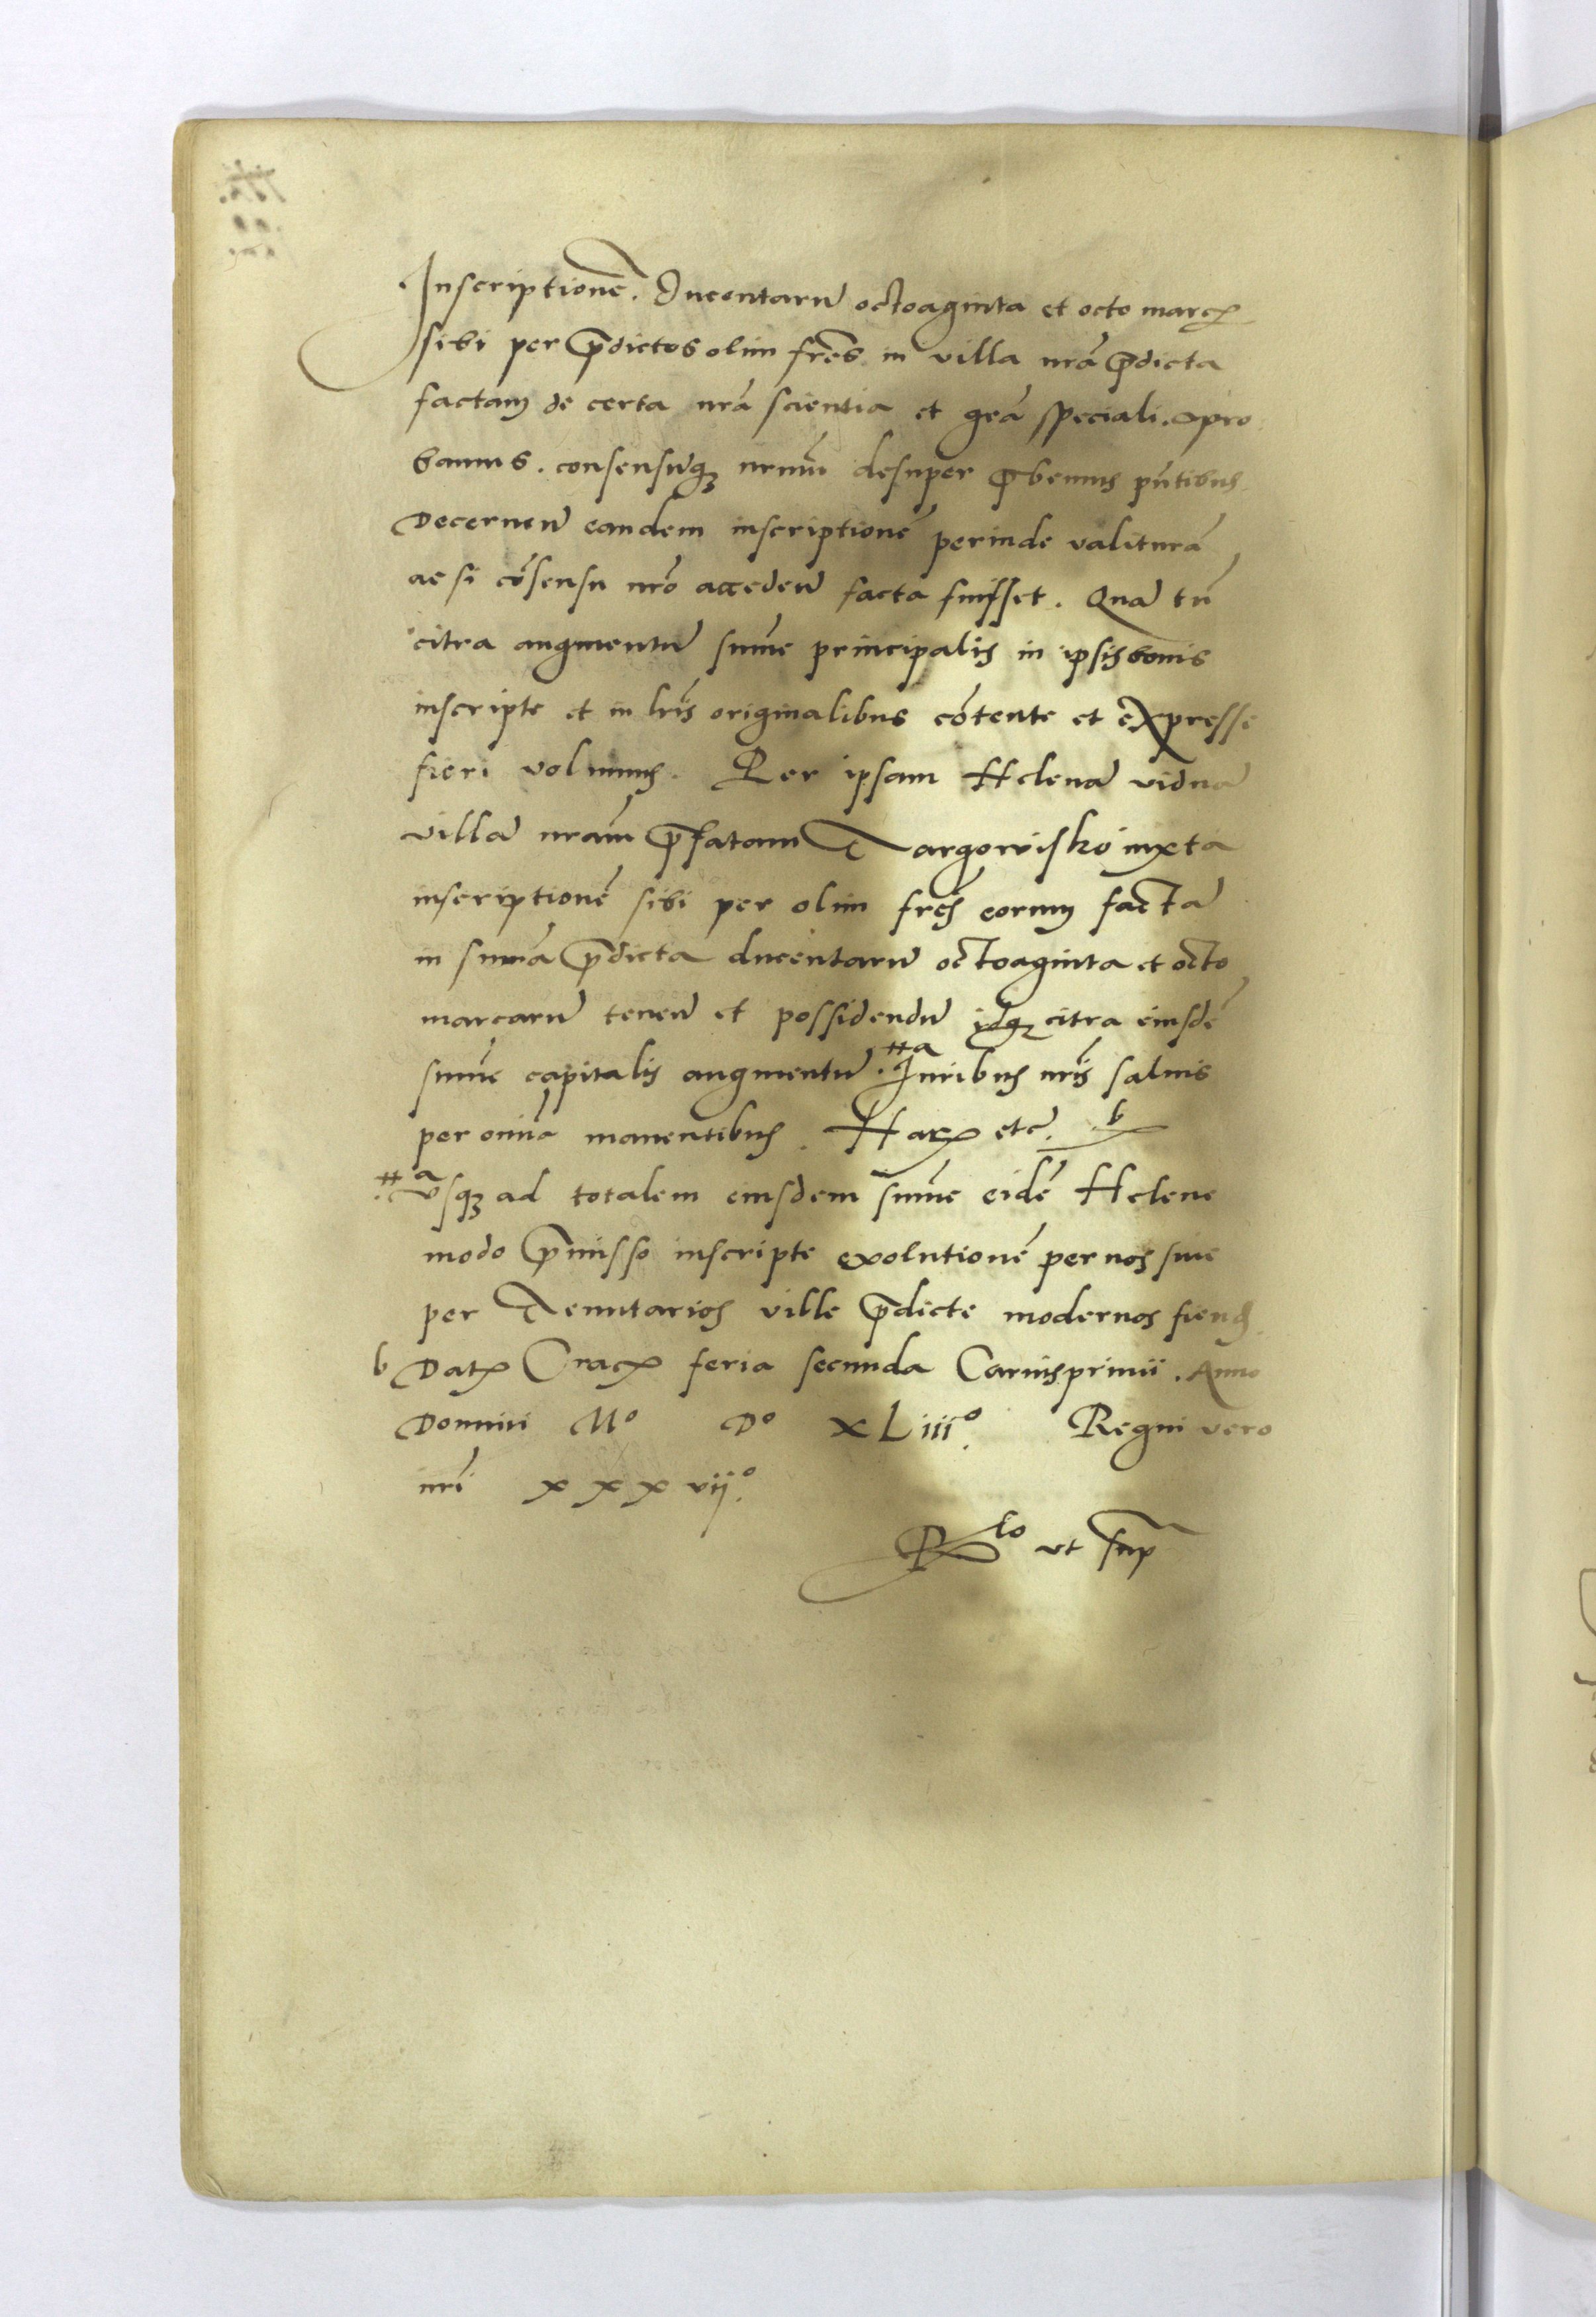 Inscriptionē. Ducentarū octoaginta et octo marcꝝ
sibi per p̄dictos olim frēs in villa nrā p̄dicta
factam de certa nrā scientia et grā speciali. Apro
bamus. consensūqꝫ nrum̄ desuper p̄bemus pn̄tibus
Decernen̄ eandem inscriptionē perinde valiturā
ac si cōsensu nrō acceden̄ facta fuisset. Quā tn̄
citra augmentū sum̄e principalis in ipsis bonis
inscripte et in lrīs originalibus cōtente et expresse
fieri volumus. Per ipsam Helenā viduā
villā nram̄ p̄fatam Targowisko iuxta
inscriptionē sibi per olim frēs eorum factā
in sum̄a p̄dicta ducentarū octoaginta et octo
marcarū tenen̄ et possidendū idqꝫ citra eiusdē
sum̄e capitalis augmentū. # a Iuribus nrīs saluis
per omīa manentibus. Harꝝ etc̄. b
# a vsqꝫ ad totalem eiusdem sum̄e eidē Helene
modo p̄misso inscripte exolutionē per nos siue
per Tenutarios ville p̄dicte modernos fiend̄
b Datꝝ Cracꝝ feria secunda Carnispriuii. Anno
Domini Mº Dº XLiiiº. Regni vero
nrī xxxvijº.
Rlo ut sup̄